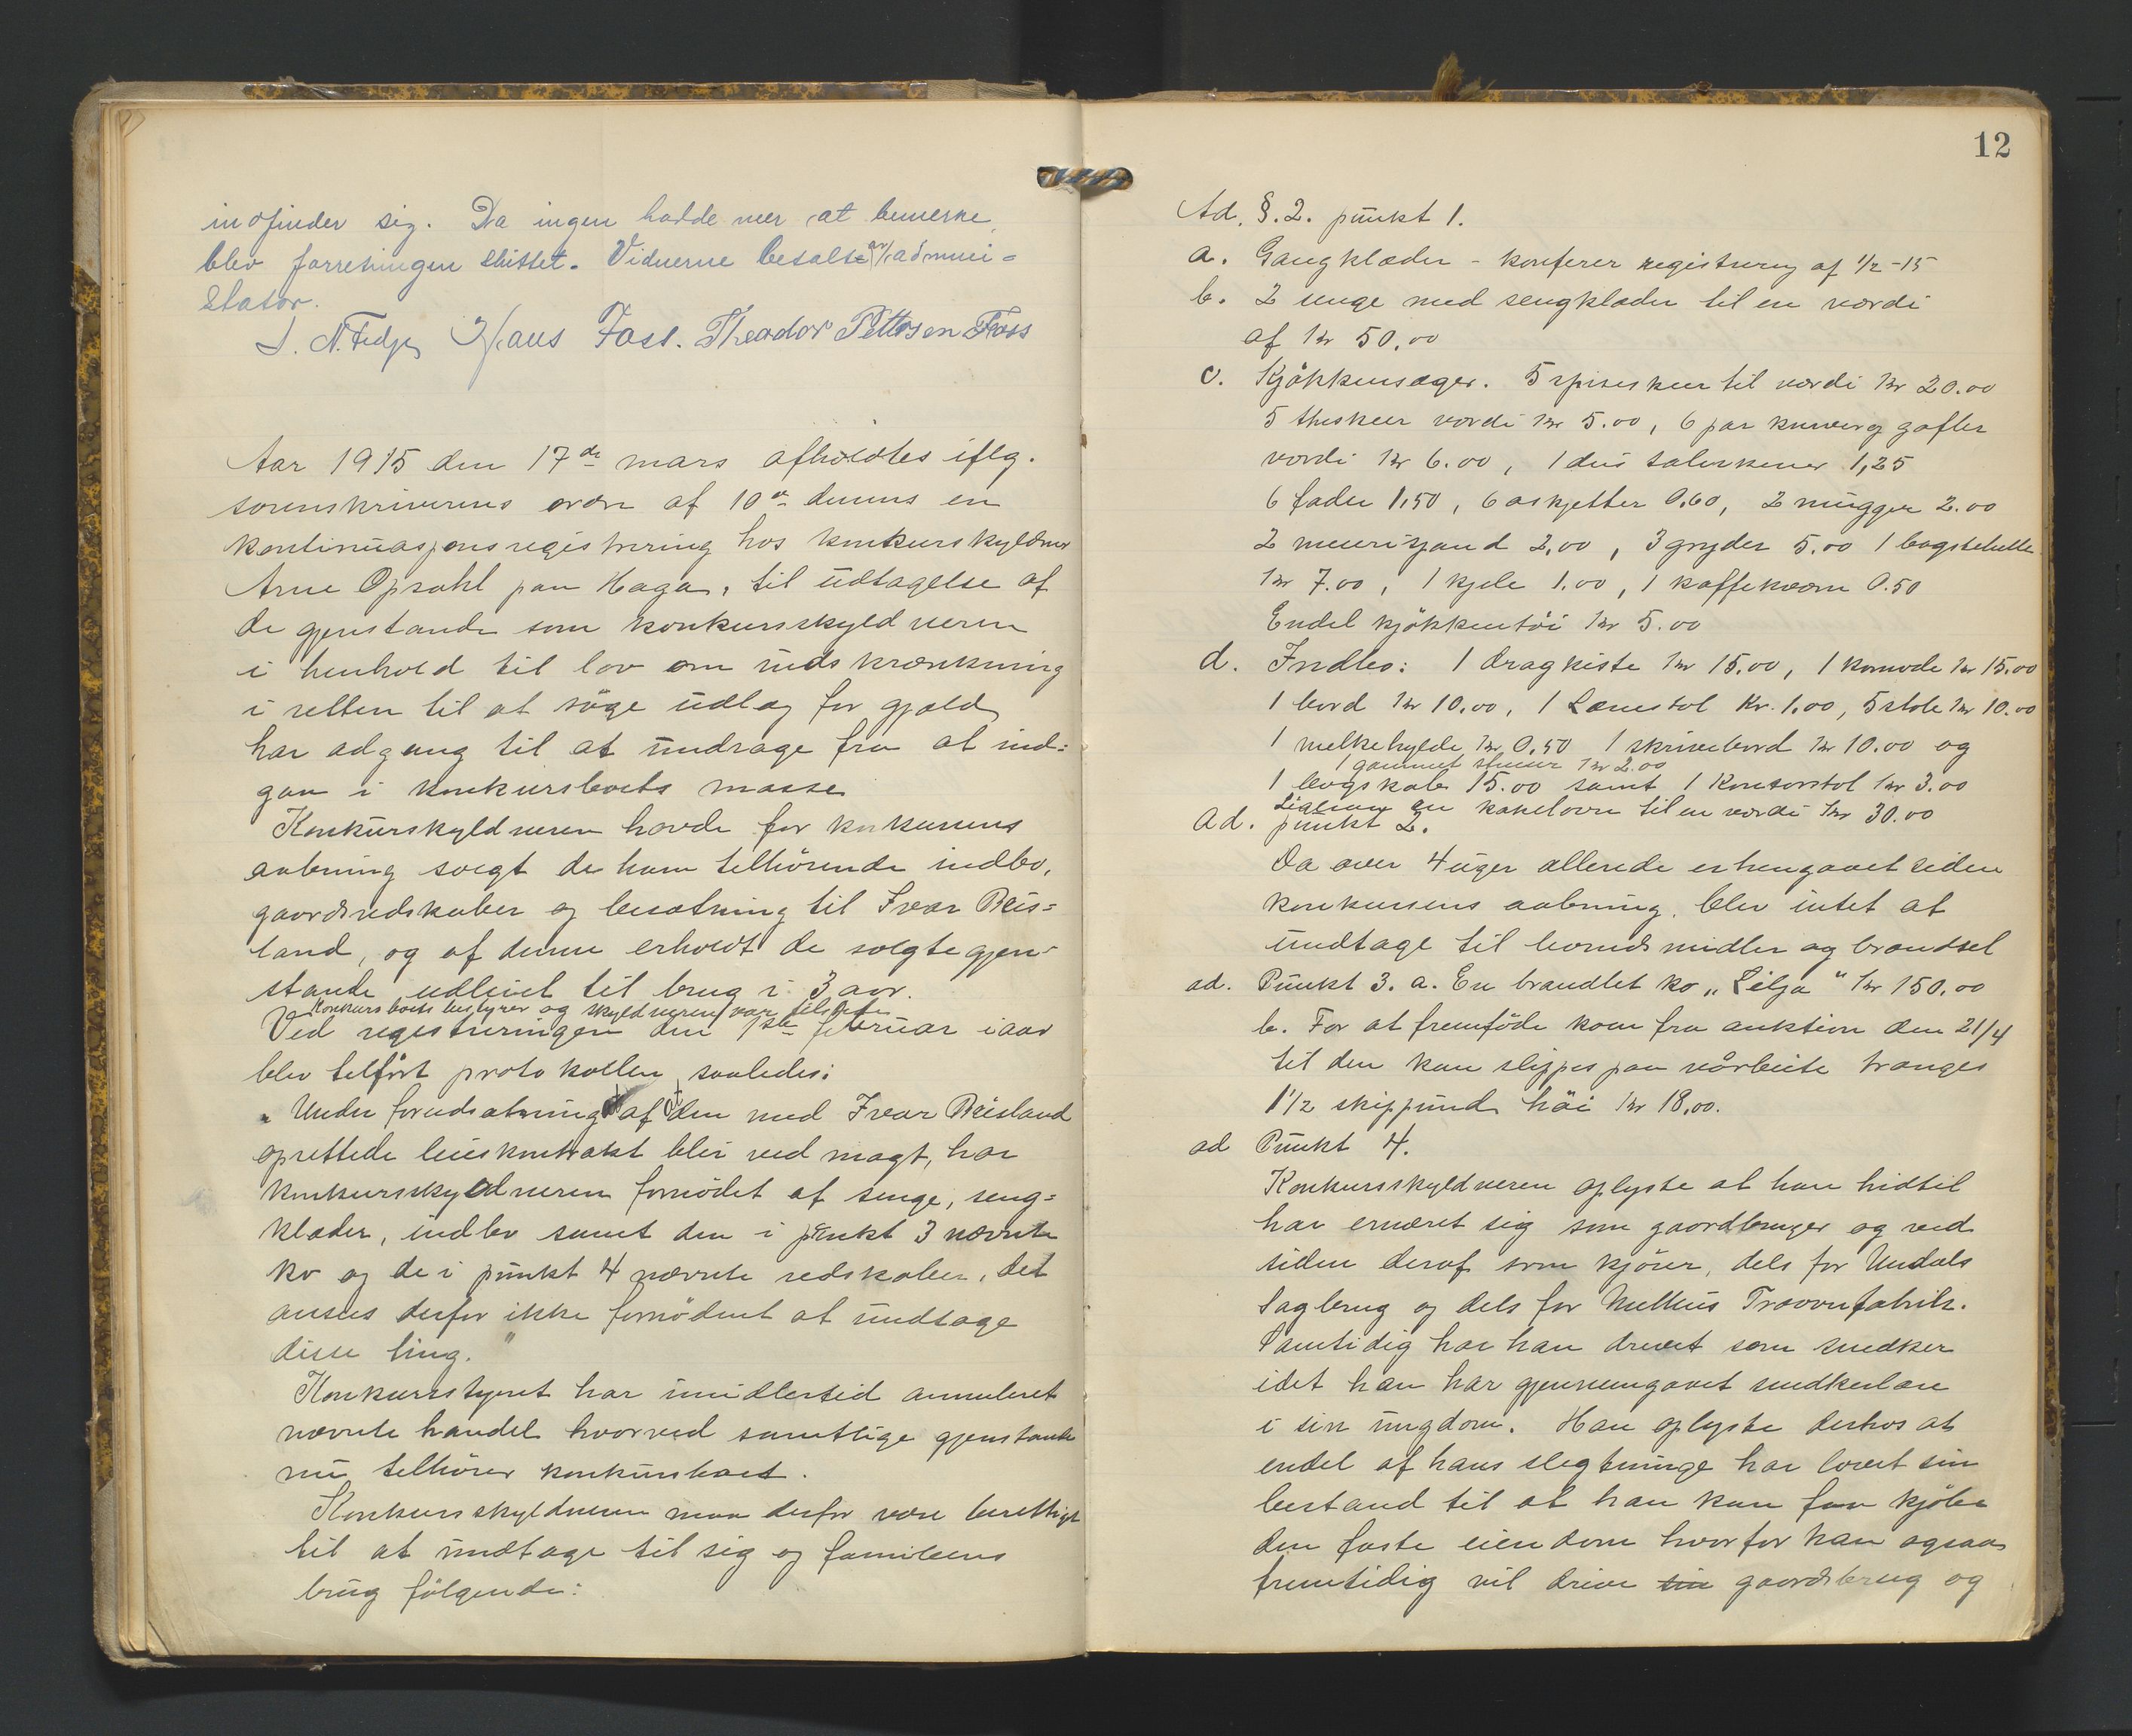 indfinder sig. Da ingen hadde mer at bemerke,
blev forretningen sluttet. Vidnerne betalt av admini-
strator.
Hans Foss. Theodor Pettersen Foss
Aar 1915 den 17de mars afholdtes iflg.
sorenskriverens ordre af 10de dennes en
kontinuasjonsregistrering hos konkursskyldner
Arne Opsahl paa Haga, til udtagelse af
de gjenstande som konkursskyldneren
i henhold til lov om indskrænkning
i retten til at söge udlæg for gjæld
har adgang til at undrage fra at ind-
gaa i konkursboets masse
Konkurskyldneren havde för konkursens
aabning solgt de ham tilhörende indbo,
gaardsredskaber og besætning til Ivar Reis-
land, og af denne erholdt de solgte gjen-
stande udleiet til brug i 3 aar.
Konkursboets bestyrer og skyldneren var tilstede
Ved registreringen den 1ste februar iaar
blev tilfört protokollen saaledes:
"Under forudsætning af at den med Ivar Reisland
oprettede leiekontrakt blir ved magt, har
konkursskyldneren fornödet af senge, seng-
klæder, indbo samt den i punkt 3 nævnte
ko og de i punkt 4 nævnte redskaber, det
ansees derfor ikke fornödent at undtage
disse ting."
Konkursstyret har imidlertid annuleret
nævnte handel hvorved samtlige gjenstande
nu tilhörer konkursboet.
Konkursskyldneren maa derfor være berettiget
til at undtage til sig og familiens
brug fölgende:
12
Ad. §. 2. punkt 1.
a. Gangklæder - konferer registrering af 1/2-15
b. 2 senge med sengklæder til en værdi
af kr 50.00
c. Kjökkensager. 5 spiseskeer til værdi kr 20.00
5 theskeer værdi kr 5.00, 6 par kniver og gafler
værdi kr 6.00, 1 dus talerkener 1,25
6 fader 1,50, 6 askjetter 0.60, 2 mugger 2.00
2 meierispand 2,00, 3 gryder 5.00 1 bagstehelle
kr 7.00, 1 kjele 1.00, 1 kaffekværn 0.50
Endel kjökkentöi kr 5.00
d. Indbo: 1 dragkiste kr 15.00, 1 komode kr 15.00
1 bord kr 10.00, 1 Lænestol kr. 1.00, 5 stole kr 10.00
1 melkehylde kr 0.50 1 skrivebord kr 10.00 og
1 gammelt kr 2.00
1 bogskab 15.00 samt 1 Kontorstol kr 3.00
Ligesaa en kakelovn til en værdi kr 30.00
Ad. punkt 2.
Da over 4 uger allerede er hengaaet siden
konkursens aabning, blev intet at
undtage til levnedsmidler og brændsel
ad. Punkt 3. a. En brandlet ko "Lilja" kr 150.00
b. For at fremföde koen fra auktion den 21/4
til den kan slippes paa vårbeite tranges
1 1/2 skippund höi kr 18,00.
ad Punkt 4.
Konkursskyldneren oplyste at han hidtil
har ernæret sig som gaardbruger og ved
siden deraf som kjörer, dels for Undals
Sagbrug og dels for Trævarefabrik.
Samtidig har han drevet som snedker
idet han har gjennemgaaet snedkerlære
i sin ungdom. Han oplyste derhos at
endel af hans slegtninge har lovet sin
bestand til at han kan faa kjöbe
den faste eiendom hvorfor han ogsaa
fremtidig vil drive sin gaardsbrug og